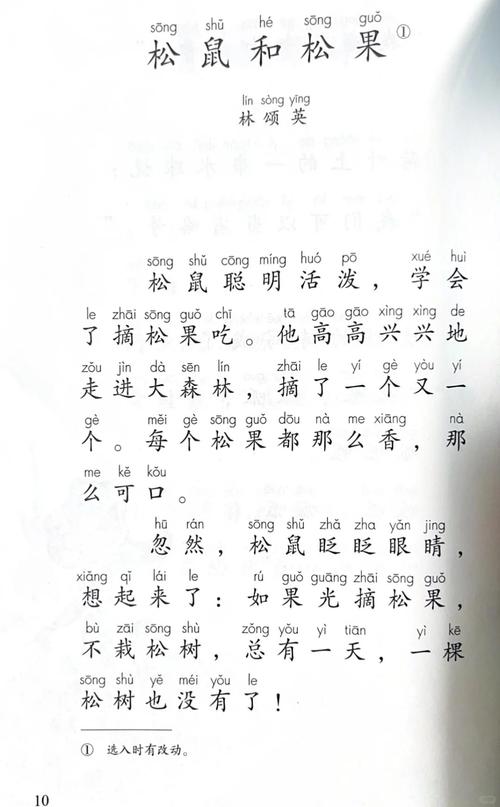 sōng shǔ hé sōng guǒ
松鼠和松果①
lín sòng yīng
林颂英
sōng shǔ cōng míng huó pō xué huì
松鼠聪明活泼，学会
le zhāi sōng guǒ chī tā gāo gāo xìng xìng de
了摘松果吃。他高高兴兴地
zǒu jìn dà sēn lín zhāi le yí gè yòu yí
走进大森林，摘了一个又一
gè měi gè sōng guǒ dōu nà me xiāng nà
个。每个松果都那么香，那
me kě kǒu
么可口。
hū rán sōng shǔ zhǎ zha yǎn jing
忽然，松鼠眨眨眼睛，
xiǎng qǐ lái le rú guǒ guāng zhāi sōng guǒ
想起来了：如果光摘松果，
bù zāi sōng shù zǒng yǒu yì tiān yì kē
不栽松树，总有一天，一棵
sōng shù yě méi yǒu le
松树也没有了！
① 选入时有改动。
10